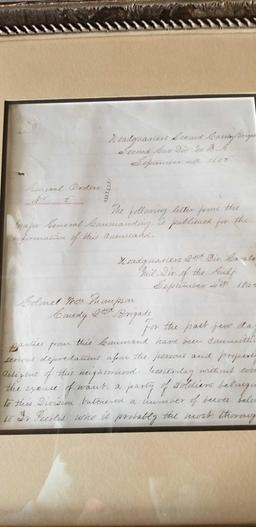 Headquarters Second Cavalry Brigade
Second Cav Div M. D. M
September 1865
General Orders
No 5
The following letter from the
Major General Commanding is published for the
information of this command.
Headquarters 2nd Div Cavalry
Mil. Div. of the Gulf
September 1865
Colonel Wm Thompson
Comdg 2nd Brigade
For the past few days
Parties from this Command have been committing
serious depredations upon the persons and property
citizens of the neighborhood. Yesterday without even
the excuse of want, a party of Soldiers belonging
to this Division butchered a number of beeves belon
to Dr Peebles who is probably the most thorough